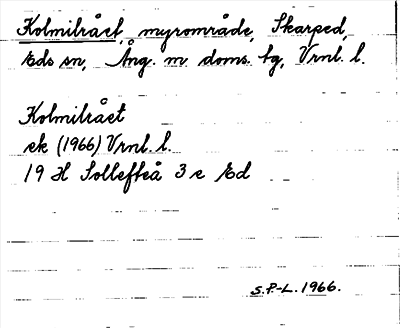 Kolmilrået, myrområde, Skarped,
Eds sn, Ång. m doms. tg, Vrnl. l.
Kolmilrået
ek (1966) Vrnl. l.
19 H Sollefteå 3 e Ed
S.P.-L. 1966.